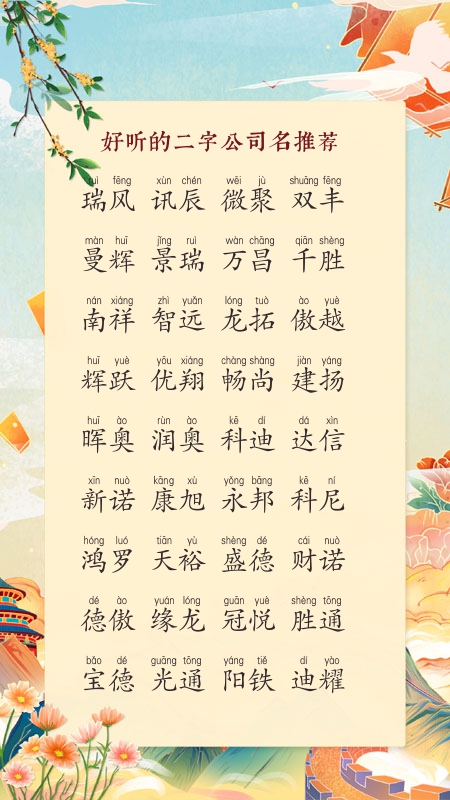 好听的二字公司名推荐
ruì fēng xùn chén wēi jù shuāng fēng
瑞风 讯辰 微聚 双丰
màn huī jǐng ruì wàn chāng qiān shèng
曼辉 景瑞 万昌 千胜
nán xiáng zhì yuǎn lóng tuò ào yuè
南祥 智远 龙拓 傲越
huī yuè yōu xiáng chàng shàng jiàn yáng
辉跃 优翔 畅尚 建扬
huī ào rùn ào kē dí dá xìn
晖奥 润奥 科迪 达信
xīn nuò kāng xù yǒng bāng kē ní
新诺 康旭 永邦 科尼
hóng luó tiān yù shèng dé cái nuò
鸿罗 天裕 盛德 财诺
dé ào yuán lóng guān yuè shèng tōng
德傲 缘龙 冠悦 胜通
bǎo dé guāng tōng yáng tiě dí yào
宝德 光通 阳铁 迪耀